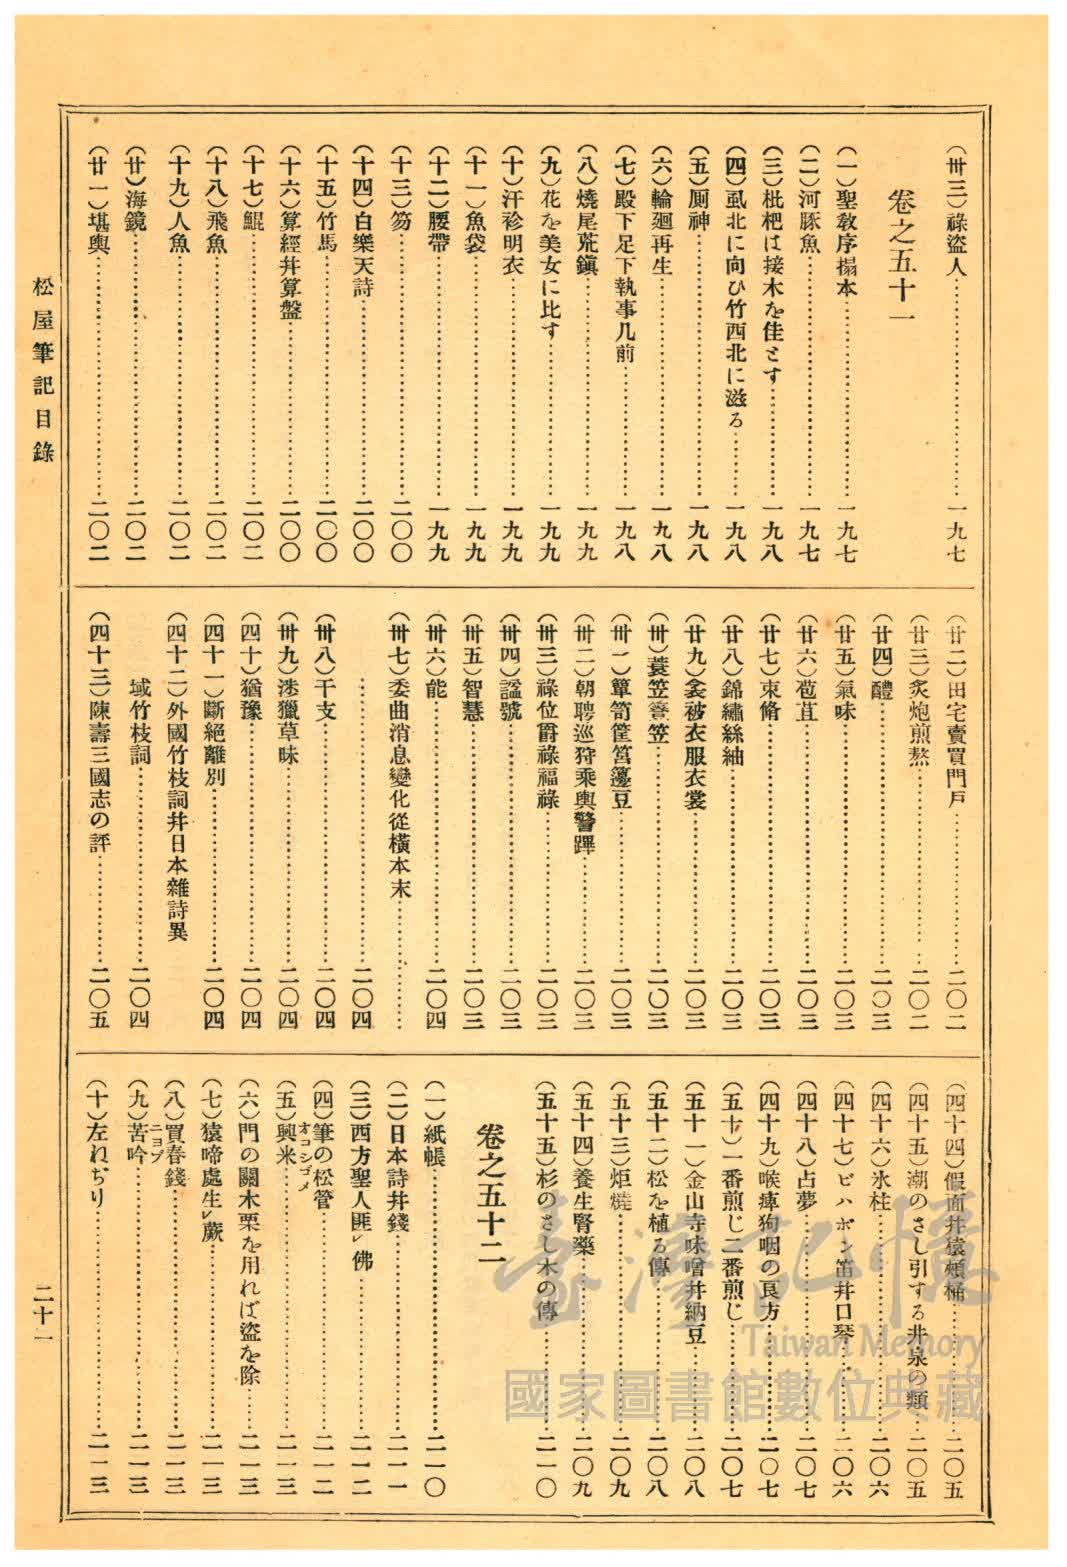 (卅三)祿盜人…………一九七
卷之五十一
(一)聖敎序搨本…………一九七
(二)河豚魚…………一九七
(三)枇杷は接木を佳とす…………一九八
(四)虱北に向ひ竹西北に滋る…………一九八
(五)厠神…………一九八
(六)輪廻再生…………一九八
(七)殿下足下執事几前…………一九八
(八)燒尾荒鎭…………一九九
(九)花を美女に比す…………一九九
(十)汗袗明衣…………一九九
(十一)魚袋…………一九九
(十二)腰帶…………一九九
(十三)笏…………二〇〇
(十四)白樂天詩…………二〇〇
(十五)竹馬…………二〇〇
(十六)算經幷算盤…………二〇〇
(十七)鯤…………二〇二
(十八)飛魚…………二〇二
(十九)人魚…………二〇二
(廿)海鏡…………二〇二
(廿一)堪輿…………二〇二
(廿二)田宅賣買門戶…………二〇二
(廿三)炙炮煎熬…………二〇二
(廿四)醴…………二〇三
(廿五)氣味…………二〇三
(廿六)苞苴…………二〇三
(廿七)束脩…………二〇三
(廿八)錦繡絲紬…………二〇三
(廿九)衾被衣服衣裳…………二〇三
(卅)蓑笠簦笠…………二〇三
(卅一)簞笥筐筥籩豆…………二〇三
(卅二)朝聘巡狩乘輿警蹕…………二〇三
(卅三)祿位爵祿福祿…………二〇三
(卅四)諡號…………二〇三
(卅五)智慧…………二〇三
(卅六)能…………二〇四
(卅七)委曲消息變化從橫本末…………
…………二〇四
(卅八)干支…………二〇四
(卅九)涉獵草昧…………二〇四
(四十)猶豫…………二〇四
(四十一)斷絕離別…………二〇四
(四十二)外國竹枝詞幷日本雜詩異
域竹枝詞…………二〇四
(四十三)陳壽三國志の評…………二〇五
(四十四)假面幷猿頰桶…………二〇五
(四十五)潮のさし引する井泉の類…二〇五
(四十六)氷柱…………二〇六
(四十七)ビハボン笛幷口琴…………二〇六
(四十八)占夢…………二〇七
(四十九)喉痺狗咽の良方…………二〇七
(五十)一番煎じ二番煎じ…………二〇七
(五十一)金山寺味噌幷納豆…………二〇八
(五十二)松を植る傳…………二〇八
(五十三)炬燵…………二〇九
(五十四)養生腎藥…………二〇九
(五十五)杉のさし木の傳…………二一〇
卷之五十二
(一)紙帳…………二一〇
(二)日本詩幷錢…………二一一
(三)西方聖人匪レ佛…………二一二
(四)筆の松管…………二一二
(五)興米オコシゴメ…………二一三
(六)門の閾木栗を用れば盜を除…………二一三
(七)猿啼處生レ蕨…………二一三
(八)買春錢…………二一三
(九)苦吟ニヨブ…………二一三
(十)左ねぢり…………二一三
松屋筆記目錄
二十一
臺灣記憶
Taiwan Memory
國家圖書館數位典藏